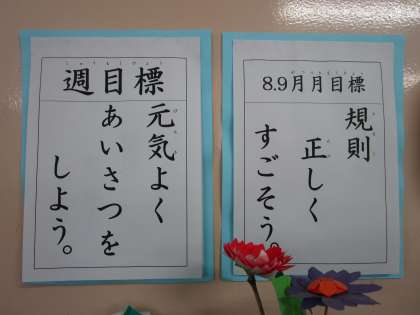 週目標
元気よく
あいさつを
しよう。
8.9月月目標
規則
正しく
すごそう。